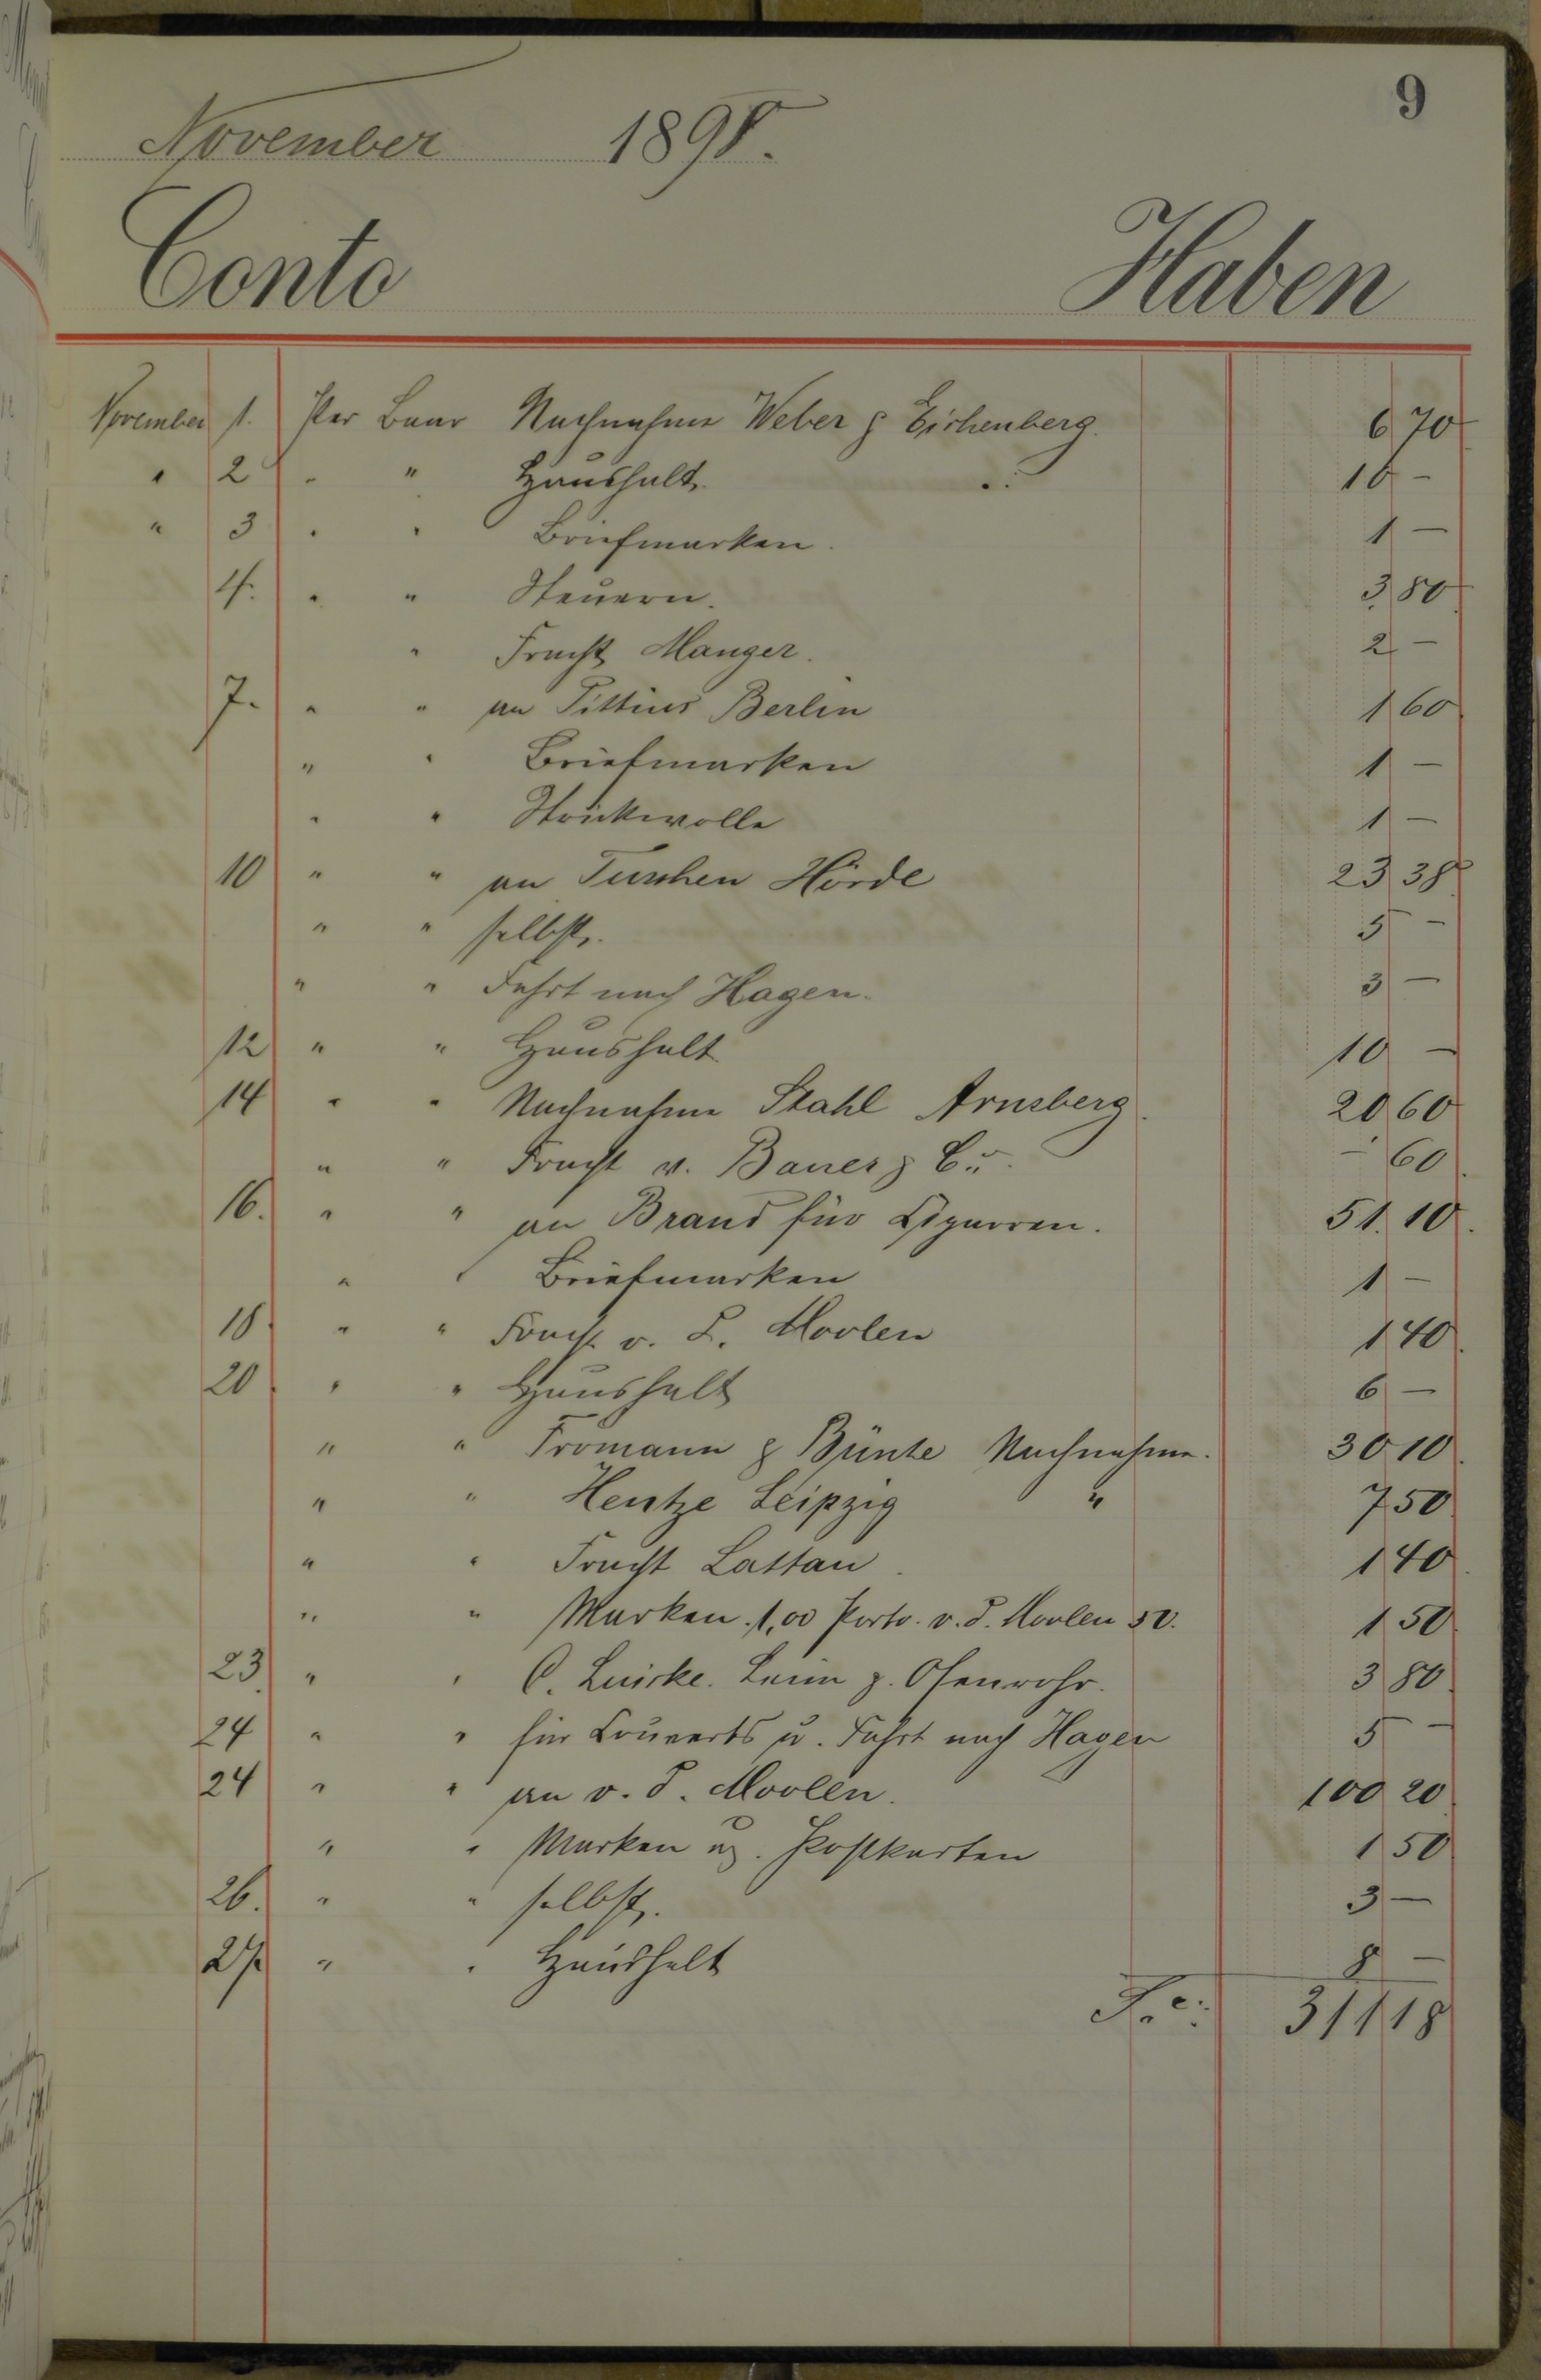 9
November 1898.
Conto Haben
November 1. Per Baar Nachnahme Weber & Eichenberg. 6 70
" 2 " " Haushalt. 16 -
" 3 " " Briefmarken. 1 -
4. " " Steuern. 3 80
" Fracht Manger. 2 -
7. " " an Pittius Berlin 1 60
" " Briefmarken 1 -
" " Strickwolle 1 -
10 " " an Tuschen Hörde 23 38
" " selbst. 5 -
" " Fahrt nach Hagen. 3 -
12 " " Haushalt 10 -
14 " " Nachnahme Stahl Arnsberg. 20 60
" " Fracht v. Bauer & Co. - 60
16. " " an Brand für Cigarren. 51. 10.
" " Briefmarken 1 -
18. " " Fracht v. Moolen 1 40
20 " " Haushalt 6 -
" " Tromann & Bünte Nachnahme. 30 10
" " Hentze Leipzig " 7 50
" " Fracht Lattau. 1 40
" " Marken 1,00 Porto v. d. Moolen 50. 1 50
23. " " C. Luicke. Leim z. Ofenrohr. 3 80
24 " " für Couverts u. Fahrt nach Hagen 5 -
24 " " an v. d. Moolen. 100 20
" " Marken u. Postkarten 1 50
26. " " selbst. 3 -
27. " " Haushalt 8 -
311 18